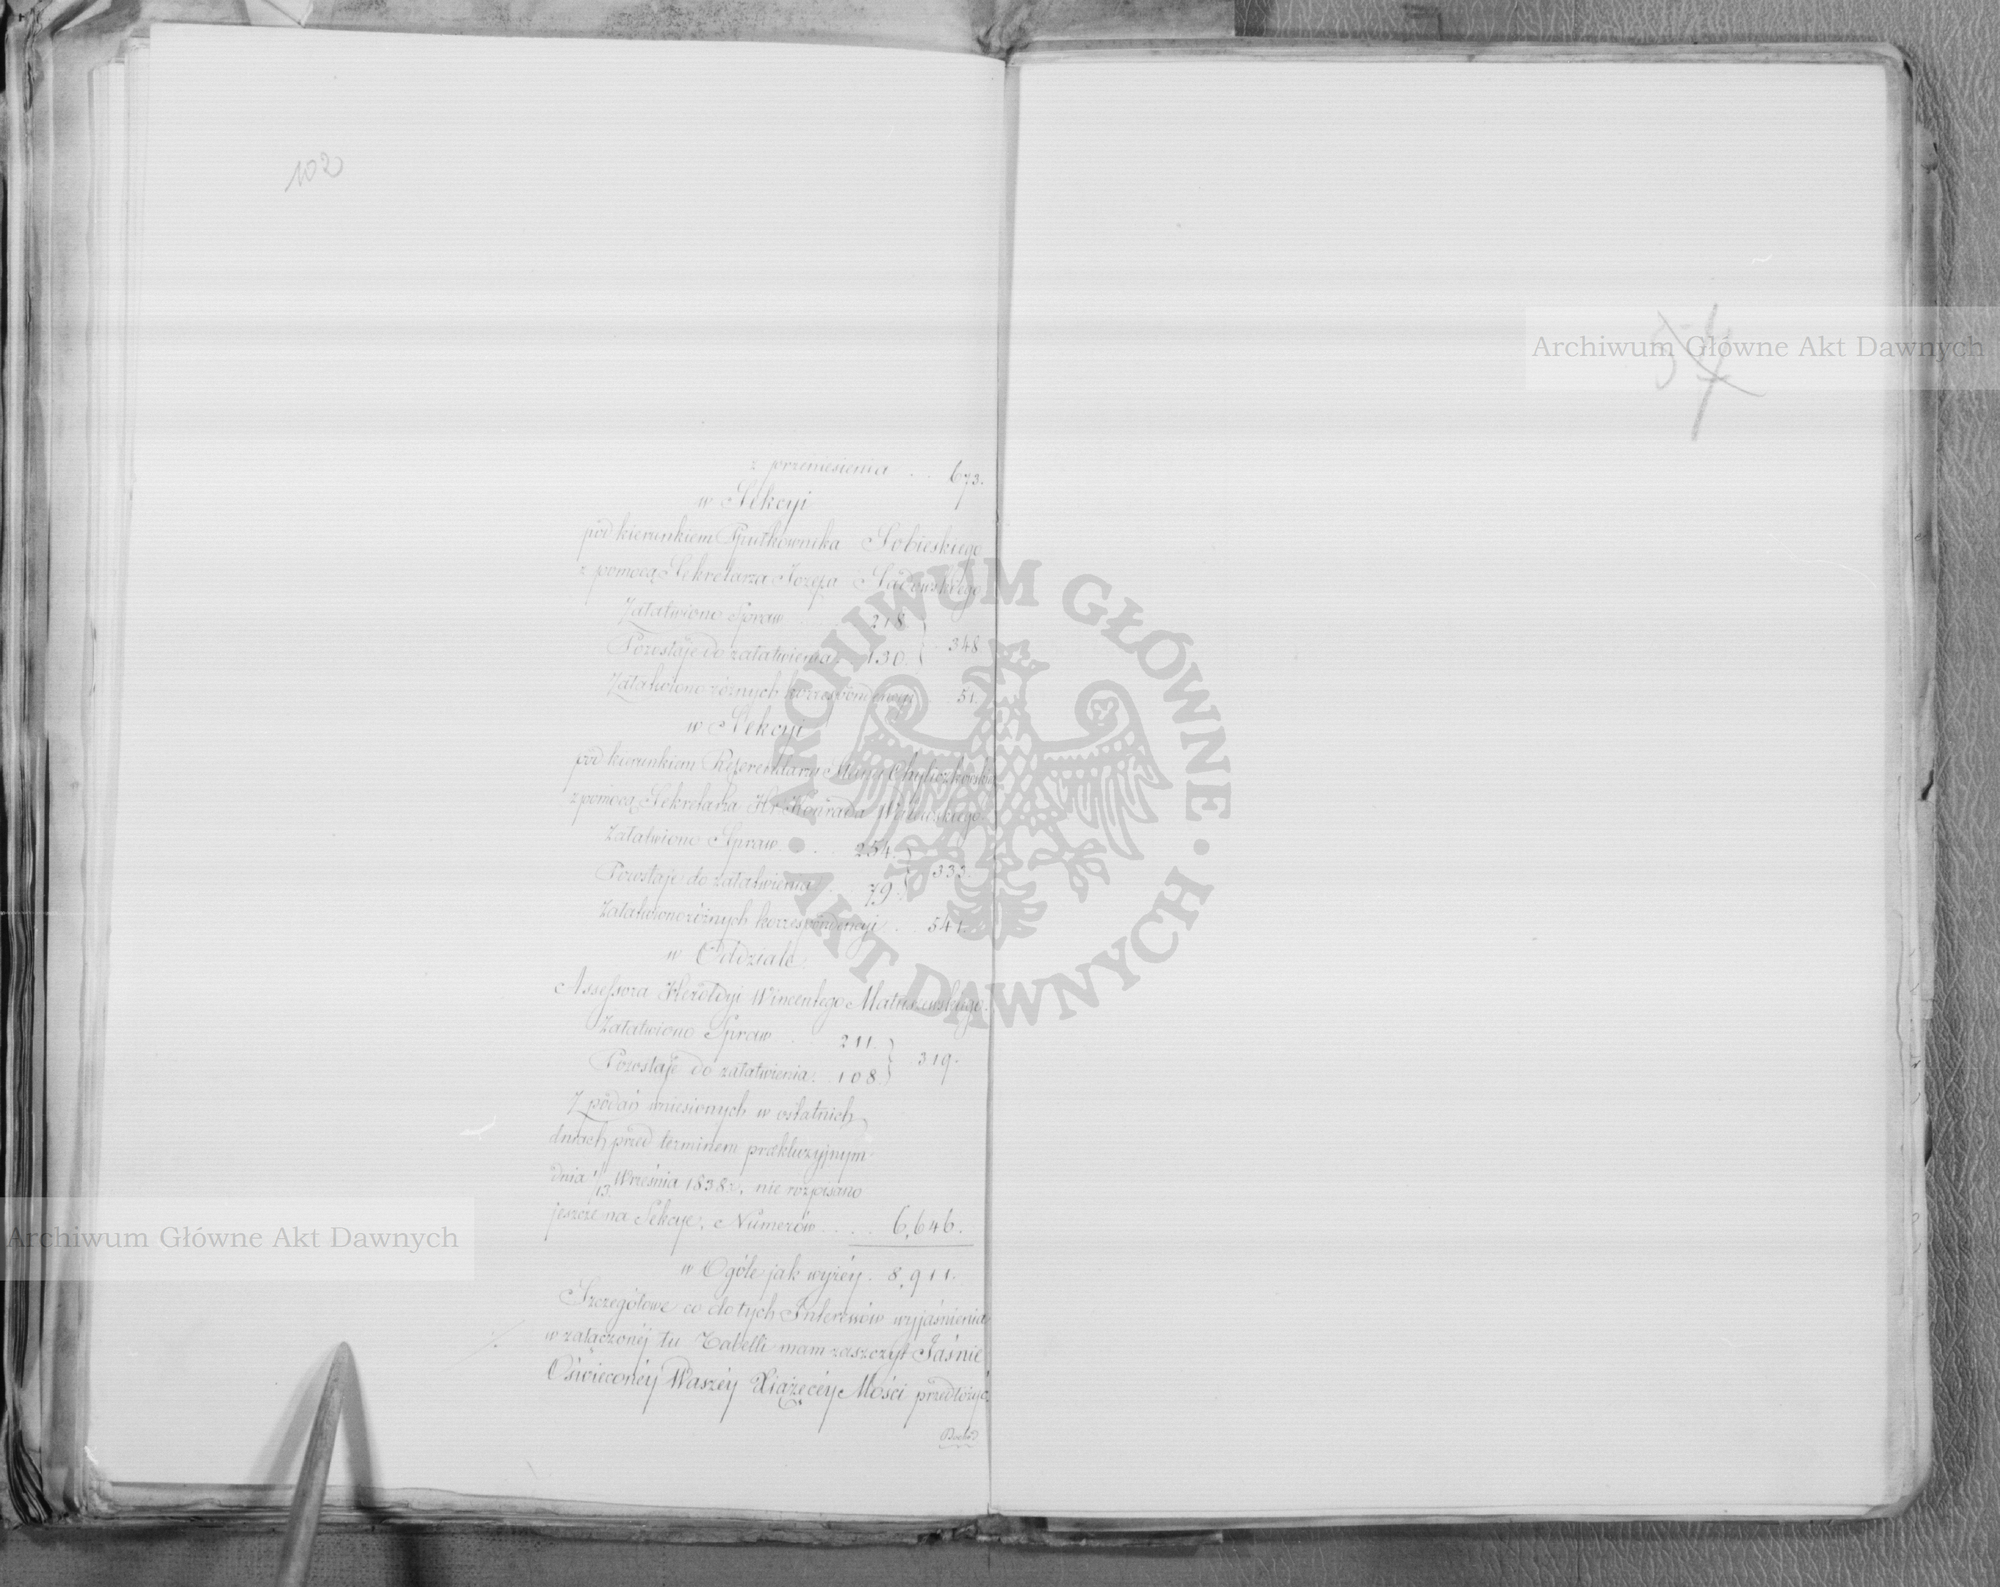 102
z przeniesienia . . 673.
w Sekcyi
pod kierunkiem Pułkownika Sobieskiego
z pomocą Sekretarza Józefa Sadowskiego
Załatwiono Spraw 218
Pozostaje do załatwienia 130. } 348
Załatwiono różnych korrespondencyi 51.
w Sekcyi
pod kierunkiem Referendarza
z pomocą Sekretarza Hr. Konrada
Załatwiono Spraw . . . 254.
Pozostaje do załatwienia . 79. } 333.
Załatwiono różnych korrespondencyi . . 541.
w Oddziale
Assessora Heroldyi Wincentego Matuszewskiego.
Załatwiono Spraw . . 211.
Pozostaje do załatwienia . 108. } 319.
Z podań wniesionych w ostatnich
dniach przed terminem prekluzyjnym
dnia 1/13 Września 1838 r. nie rozpisano
jeszcze na Sekcye, Numerów . . . 6,646.
w Ogóle jak wyżéy . 8,911.
Szczegółowe co do tych Interessów wyjaśnienia
w załączonéj tu Tabelli mam zaszczyt Jaśnie
Oświeconéy Waszéy Xiążęcéy Mości przedłożyć.
Archiwum Główne Akt Dawnych
Archiwum Główne Akt Dawnych
ARCHIWUM GŁÓWNE · AKT DAWNYCH ·